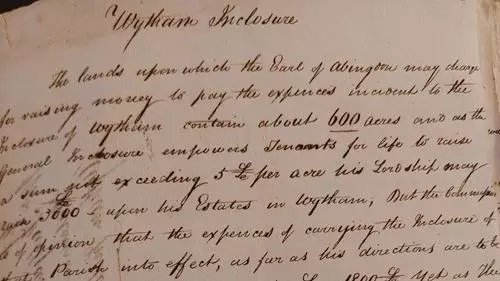 Wytham Inclosure
The lands upon which the Earl of Abingdon may charge
for raising money to pay the expences incident to the
Inclosure of Wytham contain about 600 acres and as the
General Inclosure empowers Tenants for life to raise
a sum not exceeding 5 £ per acre his Lordship may
raise 3000 £ upon his Estates in Wytham; But the Commissioner
is of opinion that the expences of carrying the Inclosure of
that Parish into effect, as far as his directions are to be
1800 £ Yet as The